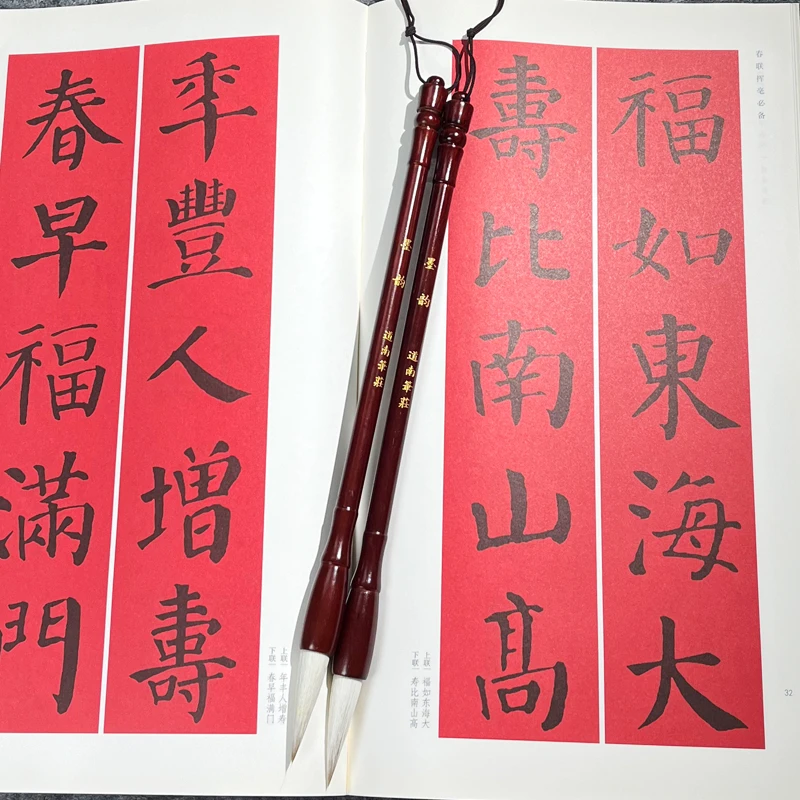 春联挥毫必备
福如東海大
壽比南山高
上联｜福如东海大
下联｜寿比南山高
32
墨韵 道南筆莊
墨韵 道南筆莊
年豐人增壽
春早福滿門
上联｜年丰人增寿
下联｜春早福满门